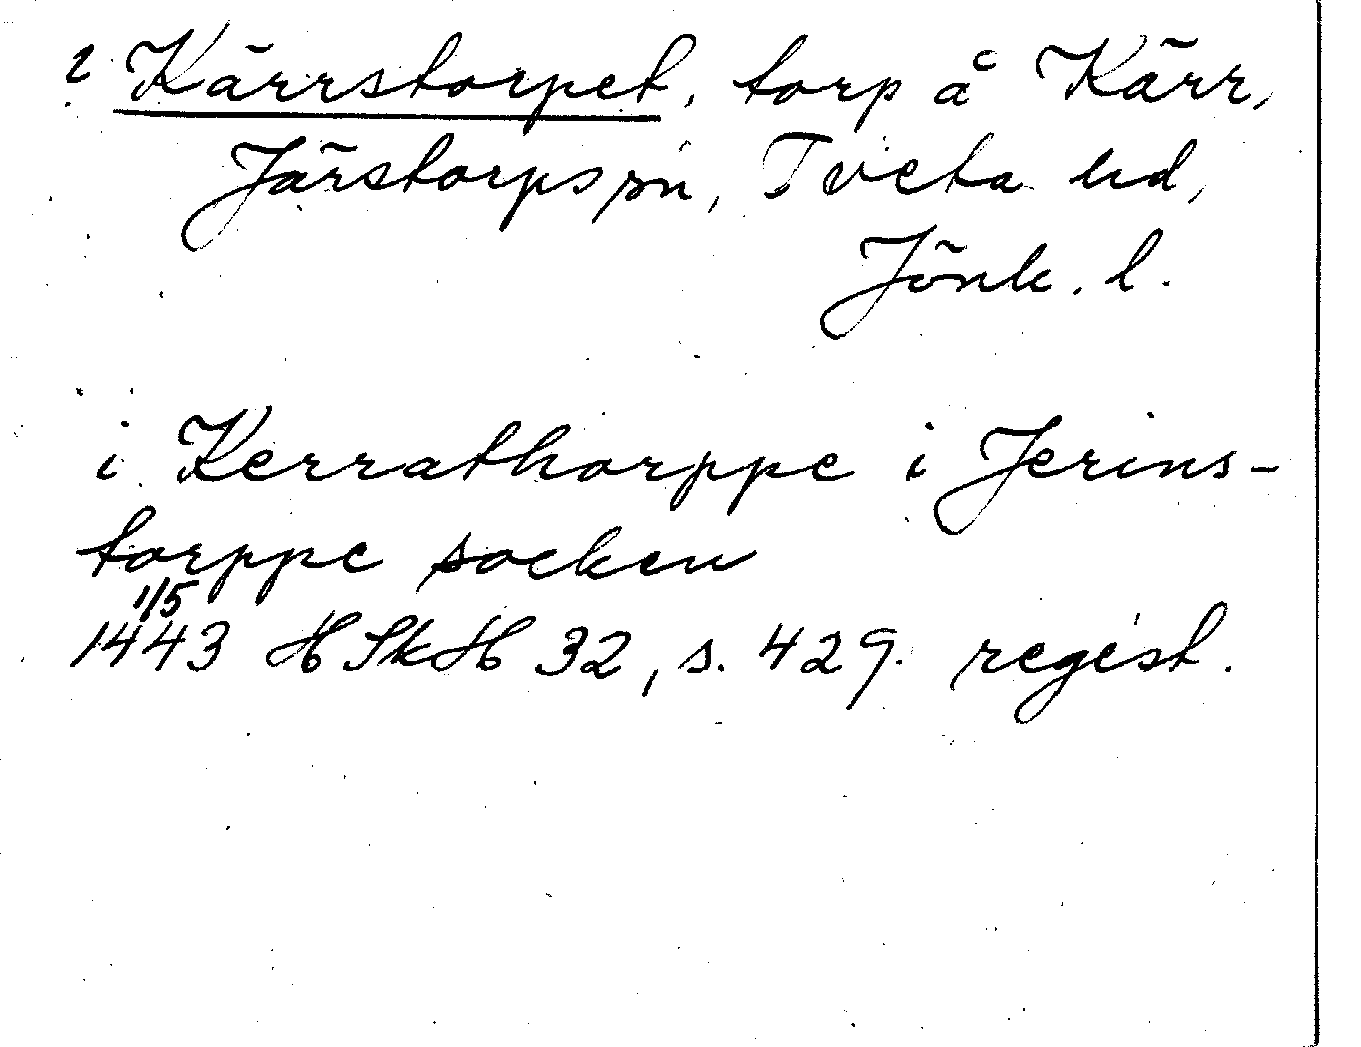 ? Kärrstorpet, torp å Kärr,
Järstorps sn, Tveta hd,
Jönk. l.
i Kerrathorppe i Jerins-
torppe socken
1/5
1443 HSkH 32, s. 429. regist.